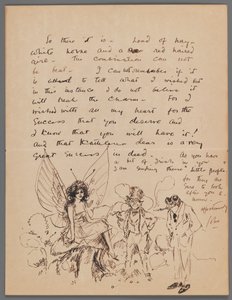 So there it is - Load of hay -
White horse and a red haired
girl - The combination can not
be beat. - I can't remember if it
is allowed to tell what I wished but
in this instance I do not believe it
will break the charm - For I
wished with all my heart for the
success that you deserve and
I know that you will have it!
and that Kathleen dear is a very
great success in deed. do you have
a bit of Irish in you -
I am sending these little people
for they are
sure to both
you &